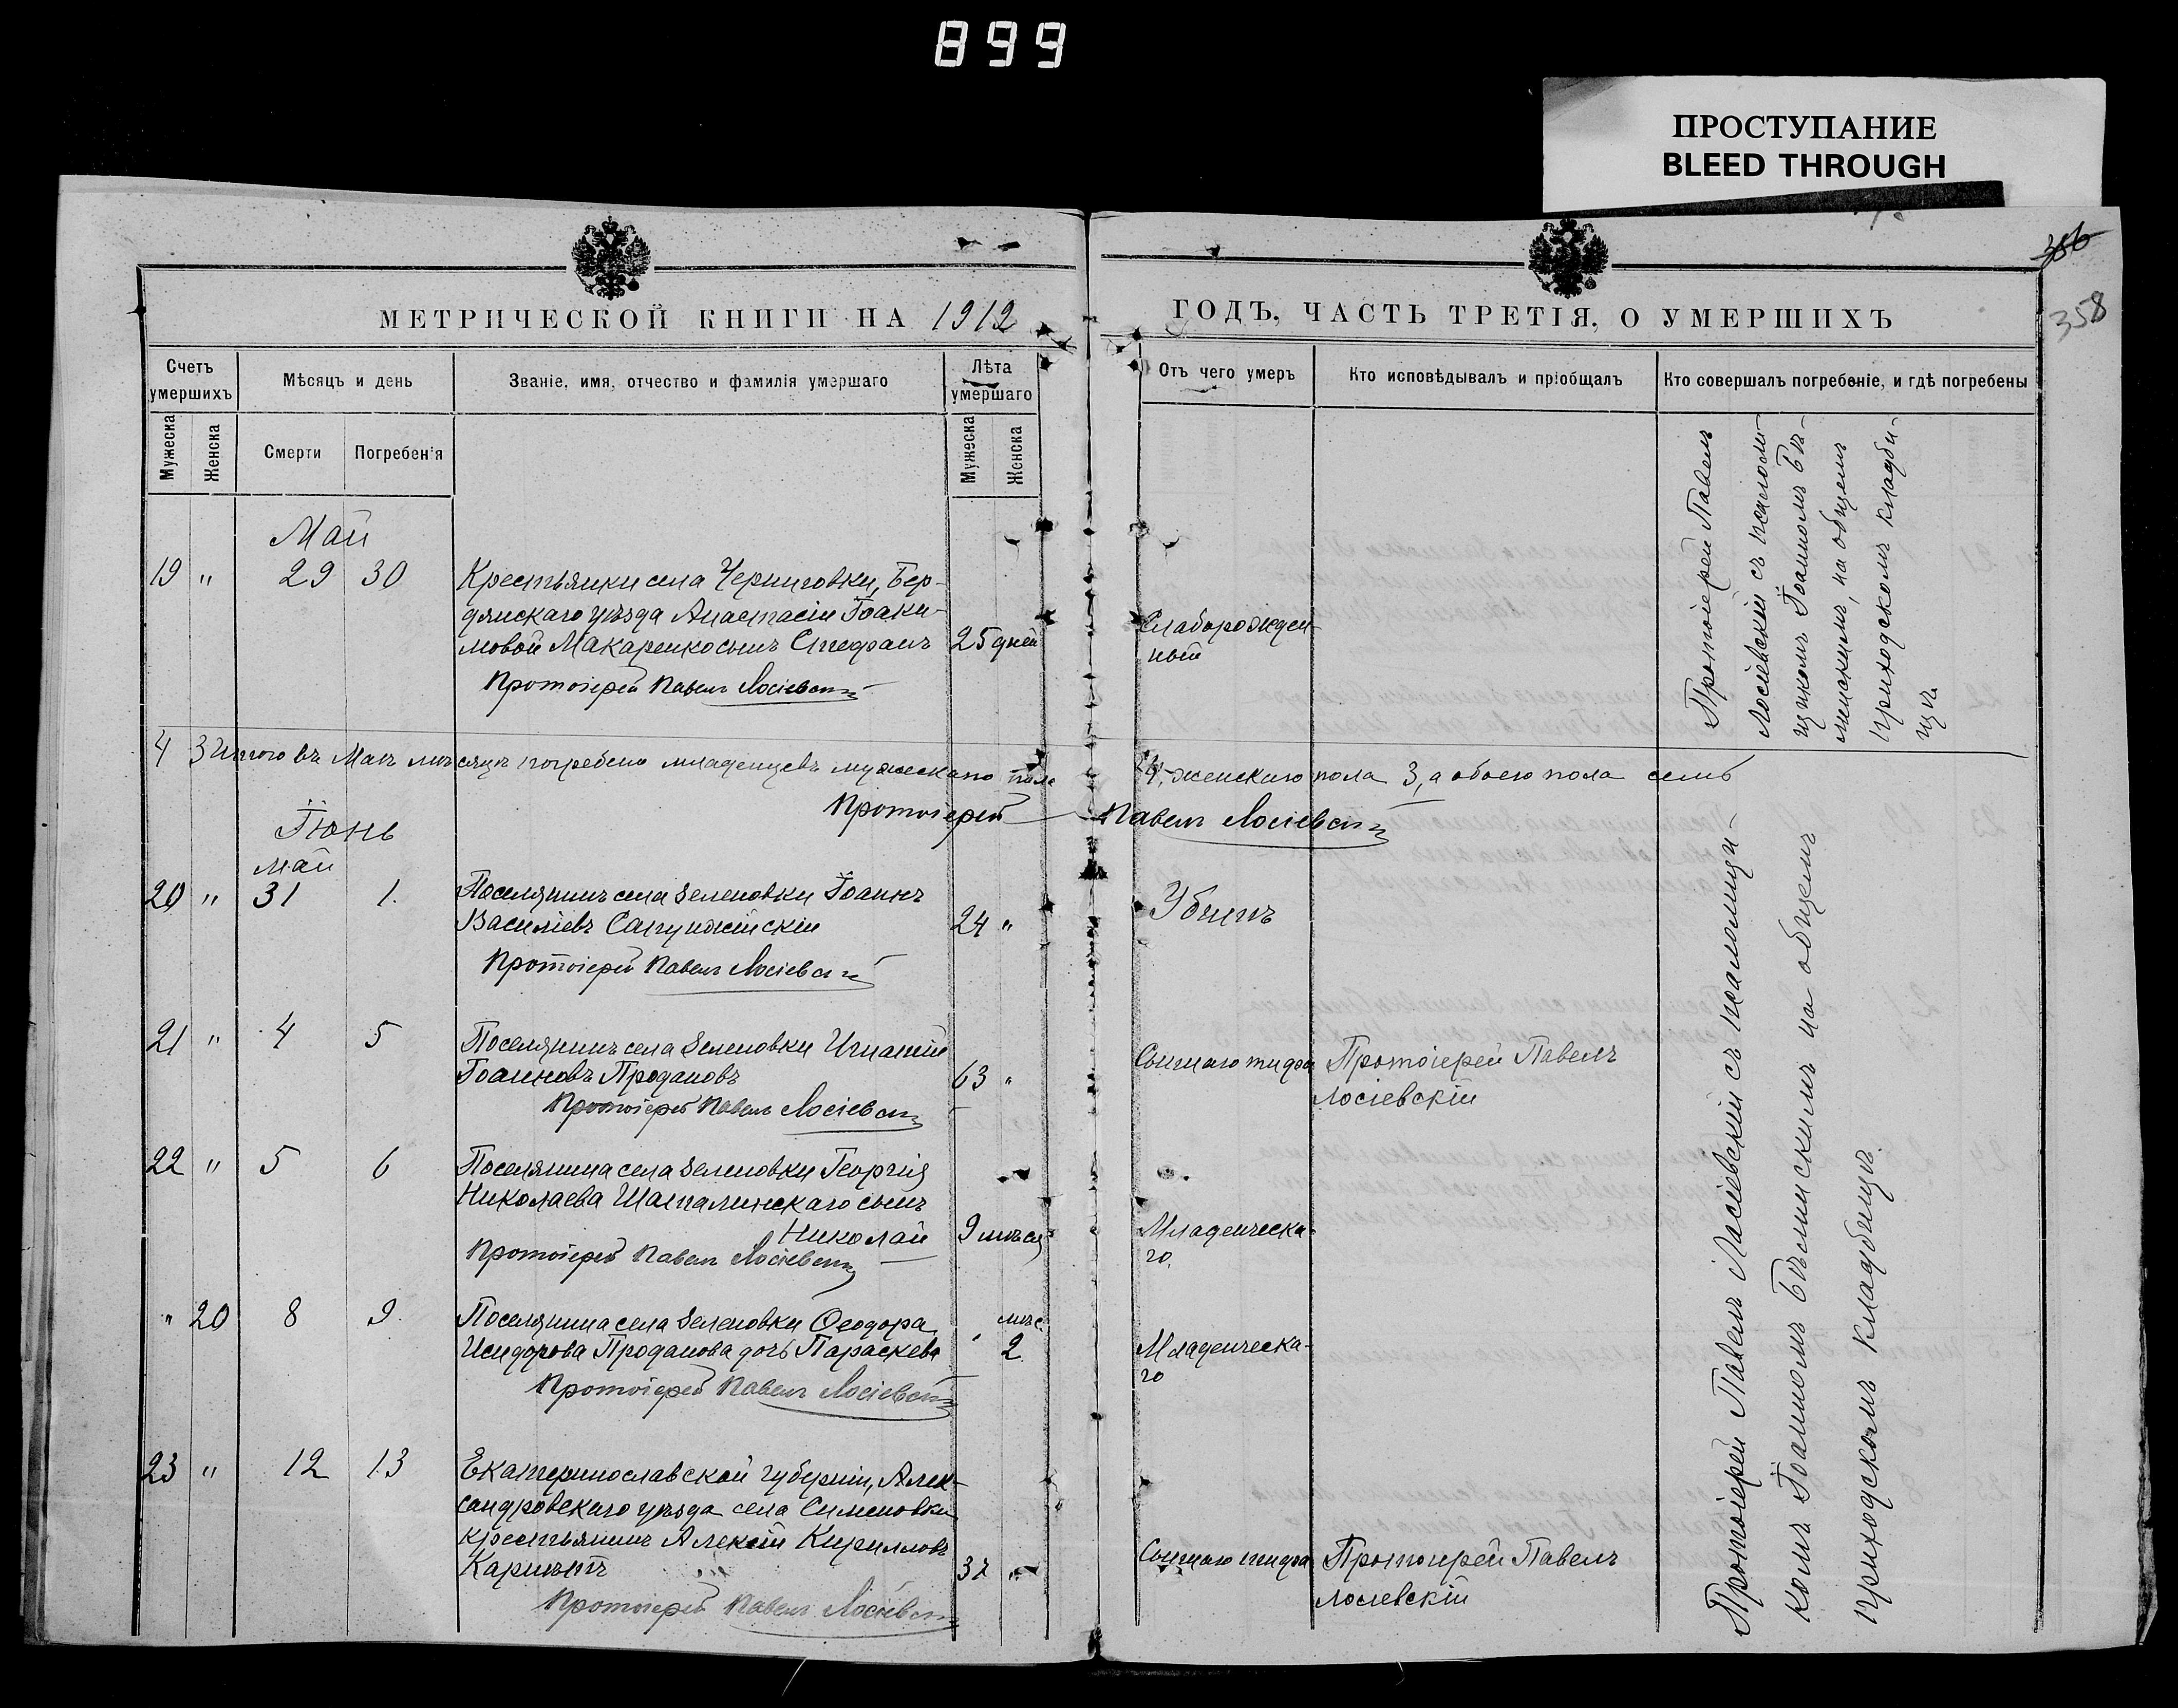 899
ПРОСТУПАНИЕ
BLEED THROUGH
356
358
МЕТРИЧЕСКОЙ КНИГИ НА 1912
ГОДЪ, ЧАСТЬ ТРЕТІЯ, О УМЕРШИХЪ
Счетъ умершихъ
Мѣсяцъ и день
Званіе, имя, отчество и фамилія умершаго
Лѣта умершаго
Отъ чего умеръ
Кто исповѣдывалъ и пріобщалъ
Кто совершалъ погребеніе, и гдѣ погребены
Мужеска
Женска
Смерти
Погребенія
Мужеска
Женска
Май
19 " 29 30
Крестьянки села Черниговки, Бер-
дянскаго уѣзда Анастасіи Іоаки-
мовой Макаренко сынъ Стефанъ 25 дней
Слаборожден-
ный
Протоіерей Павелъ Лосіевскій
Протоіерей Павелъ
Лосіевскій съ псаломщи-
комъ Іоанномъ
на общемъ
приходскомъ кладби-
щѣ.
4 3 Итого въ Маѣ мѣсяцѣ погребено младенцевъ мужескаго пола 4, женскаго пола 3, а обоего пола семь
Протоіерей Павелъ Лосіевскій
Іюнь
май
20 " 31 1.
Поселянинъ села Зеленовки Іоаннъ
Васильевъ 24 "
Убитъ
Протоіерей Павелъ Лосіевскій
21 " 4 5
Поселянинъ села Зеленовки Игнатій
Іоанновъ Продановъ 63 "
Сыпного тифа
Протоіерей Павелъ
Лосіевскій
Протоіерей Павелъ Лосіевскій
22 " 5 6
Поселянина села Зеленовки Георгія
Николаева сынъ
Николай 9 мѣсяц
Младенческа-
го.
Протоіерей Павелъ Лосіевскій
" 20 8 9.
Поселянина села Зеленовки Ѳеодора
Исидорова Проданова дочь Параскева " мѣс. 2
Младенческа-
го
Протоіерей Павелъ Лосіевскій
23 " 12 13
Екатеринославской губерніи, Алек-
сандровскаго уѣзда села
крестьянинъ Алексій Кирилловъ
37 "
Сыпного тифа
Протоіерей Павелъ
Лосіевскій
Протоіерей Павелъ Лосіевскій
Протоіерей Павелъ Лосіевскій съ псаломщи-
комъ Іоанномъ на общемъ
приходскомъ кладбищѣ.